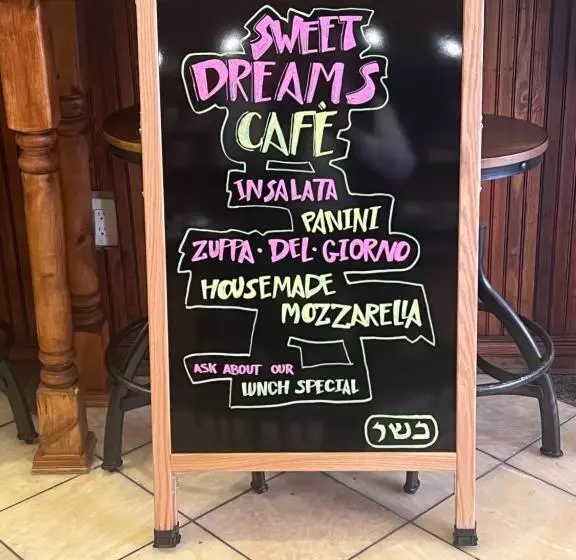 SWEET
DREAMS
CAFÈ
INSALATA
PANINI
ZUPPA · DEL · GIORNO
HOUSEMADE
MOZZARELLA
ASK ABOUT OUR
LUNCH SPECIAL
כשר